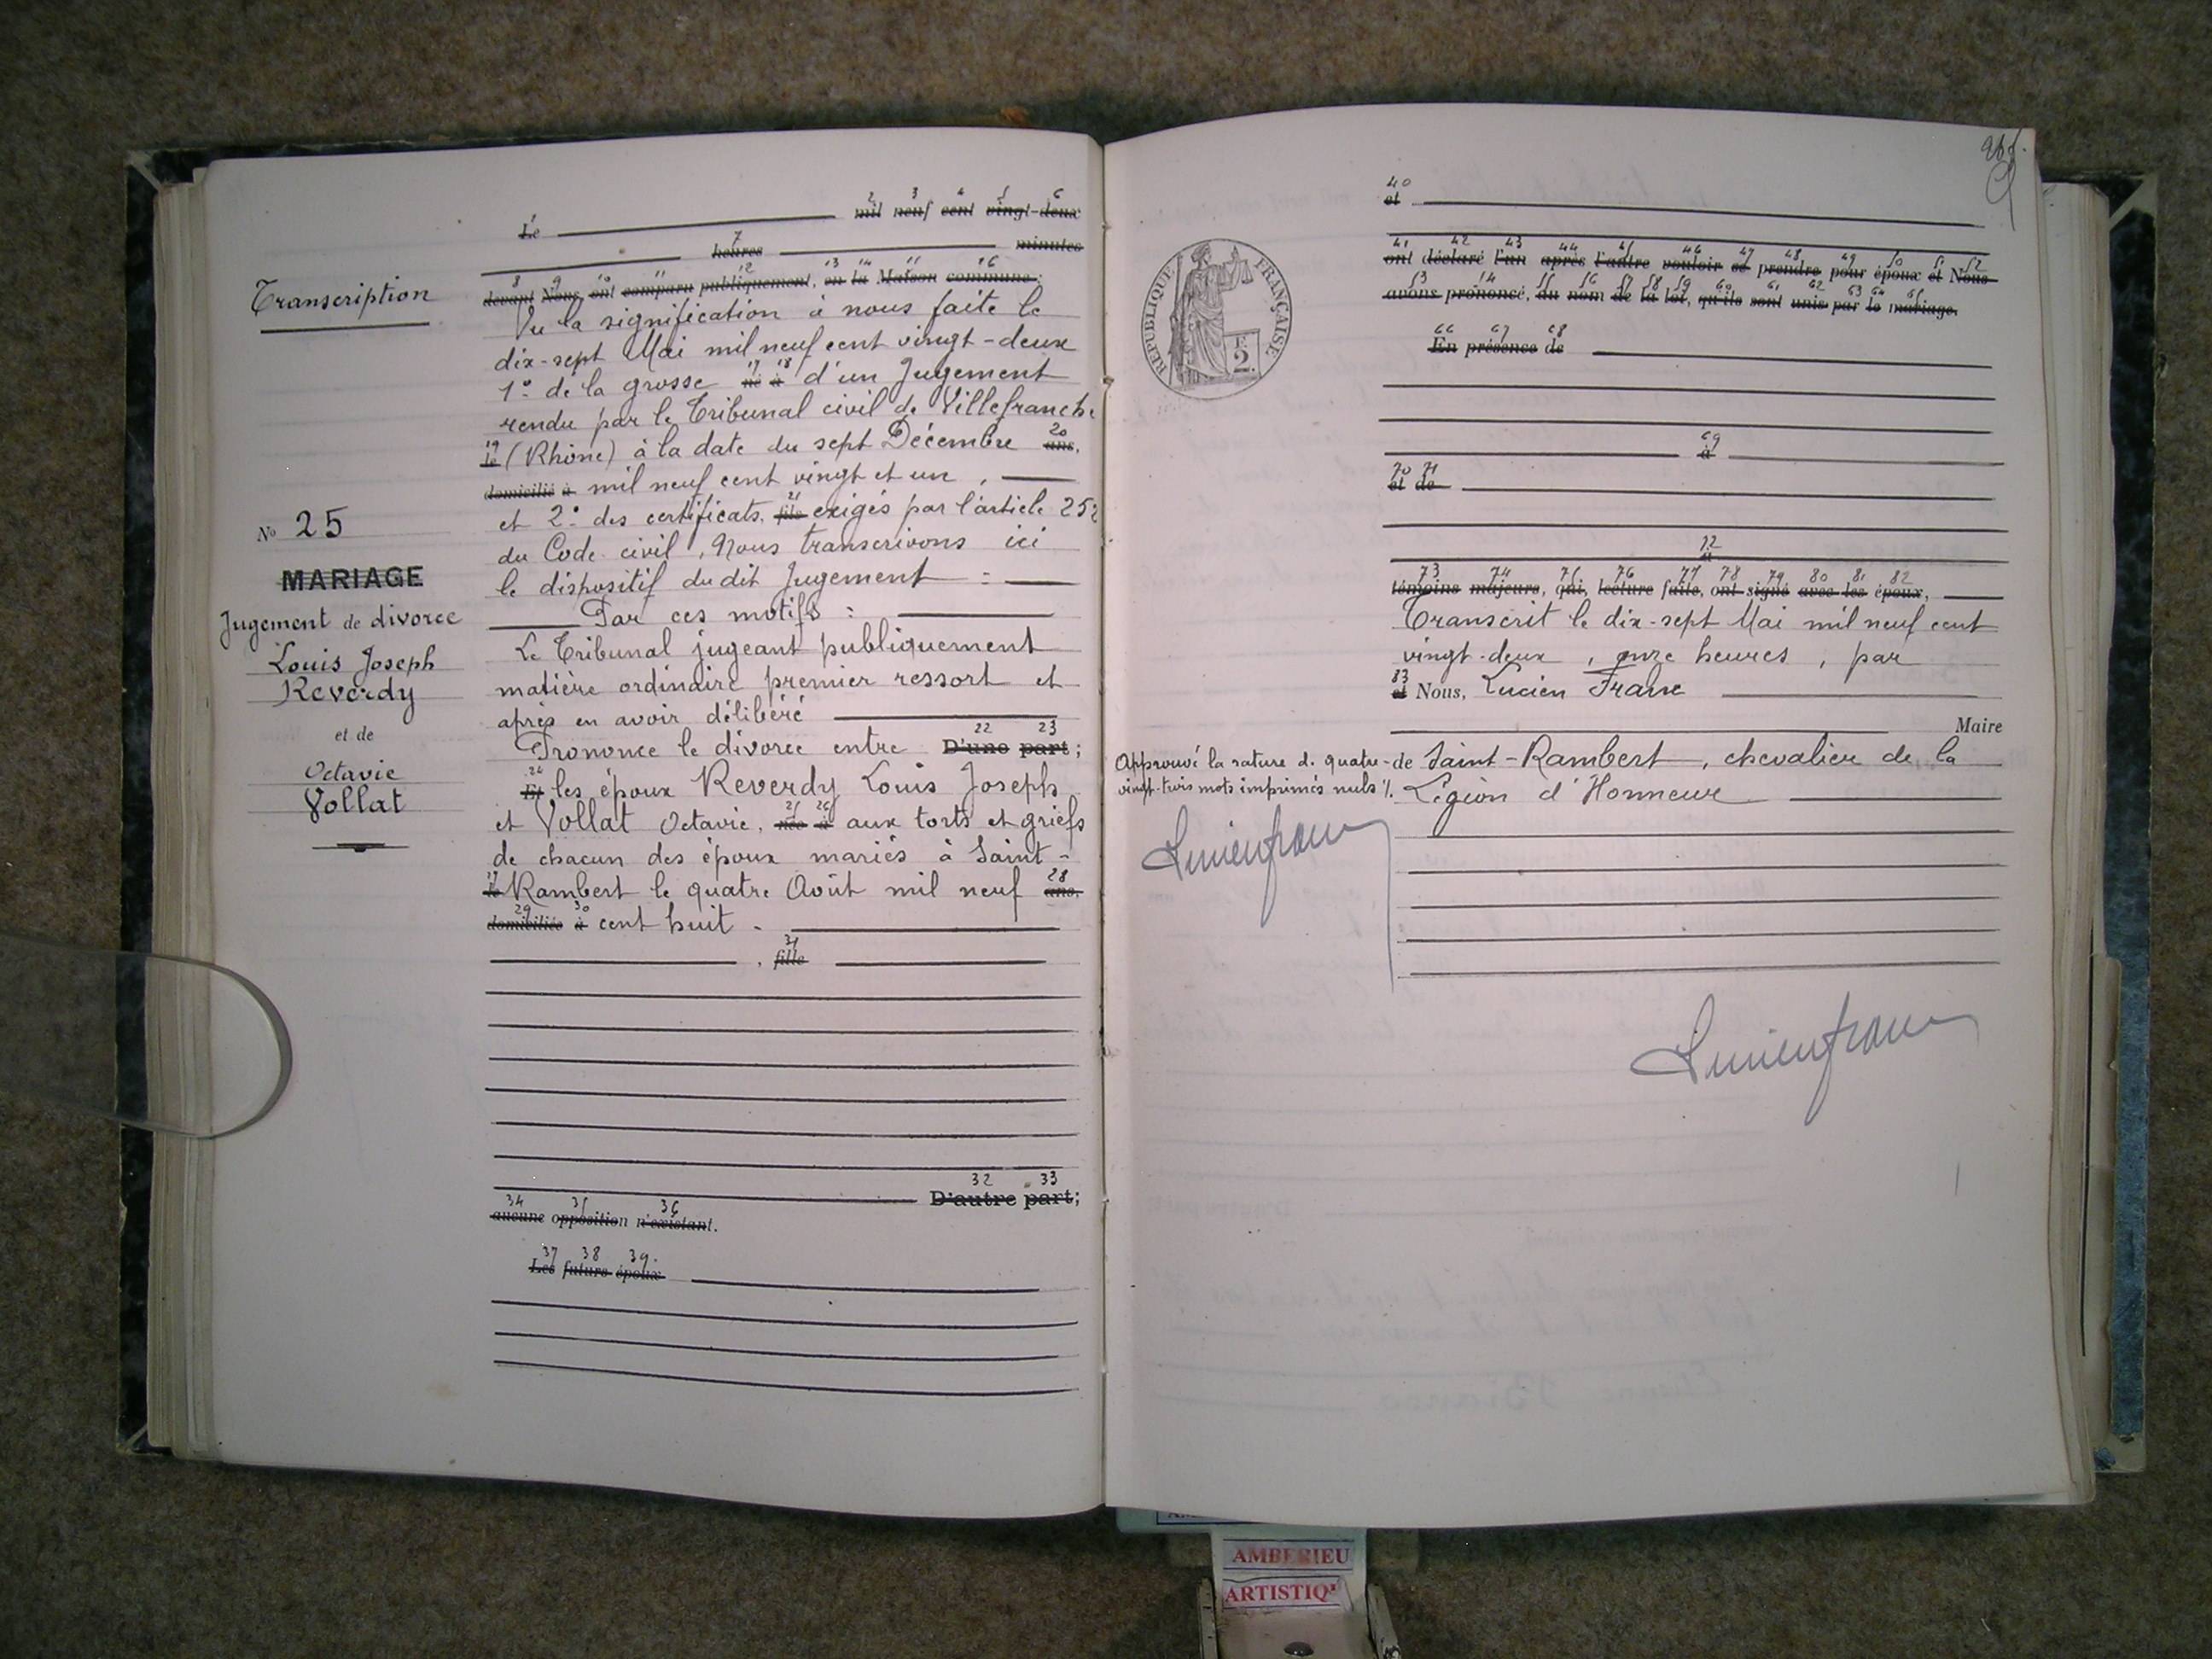 Transcription
No 25
MARIAGE
Jugement de divorce
Louis Joseph
Reverdy
et de
Octavie
Vollat
2 3 4 5 6
Le mil neuf cent vingt-deux
7
heures minutes
8 9 10 11 12 13 14 15 16
devant Nous, ont comparu publiquement, en la Maison commune:
Vu la signification à nous faite le
dix-sept Mai mil neuf cent vingt-deux
17 18
1° de la grosse né à d'un Jugement
rendu par le Tribunal civil de Villefranche
19 20
le (Rhône) à la date du sept Décembre ans,
domicilié à mil neuf cent vingt et un,
21
et 2° des certificats, fils exigés par l'article 252
du Code civil, Nous transcrivons ici
le dispositif du dit Jugement :
Par ces motifs :
Le Tribunal jugeant publiquement
matière ordinaire premier ressort et
après en avoir délibéré
22 23
Prononce le divorce entre D'une part;
24
Et les époux Reverdy Louis Joseph
25 26
et Vollat Octavie, née à aux torts et griefs
de chacun des époux mariés à Saint-
27 28
le Rambert le quatre Août mil neuf ans,
29 30
domiciliée à cent huit.
31
, fille
32 33
D'autre part;
34 35 36
aucune opposition n'existant.
37 38 39
Les futurs époux
40
et
RÉPUBLIQUE FRANÇAISE
F.
2.
41 42 43 44 45 46 47 48 49 50 51 52
ont déclaré l'un après l'autre vouloir se prendre pour époux et Nous
53 54 55 56 57 58 59 60 61 62 63 64 65
avons prononcé, au nom de la loi, qu'ils sont unis par le mariage.
66 67 68
En présence de
69
à
70 71
et de
72
à
73 74 75 76 77 78 79 80 81 82
témoins majeurs, qui, lecture faite, ont signé avec les époux,
Transcrit le dix-sept Mai mil neuf cent
vingt-deux, onze heures, par
83
et Nous, Lucien Franc
Maire
de Saint-Rambert, chevalier de la
Légion d'Honneur
Approuvé la rature de quatre-
vingt-trois mots imprimés nuls %.
Lucien franc
Lucien franc
AMBERIEU
ARTISTIQ